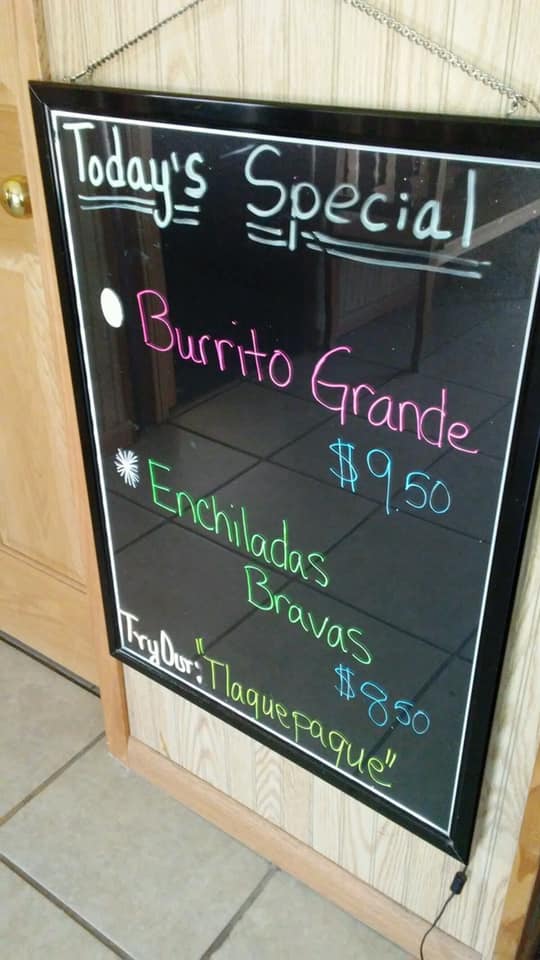 Today's Special
Burrito Grande
$9.50
Enchiladas
Bravas
$8.50
Try Our: "Tlaquepaque"